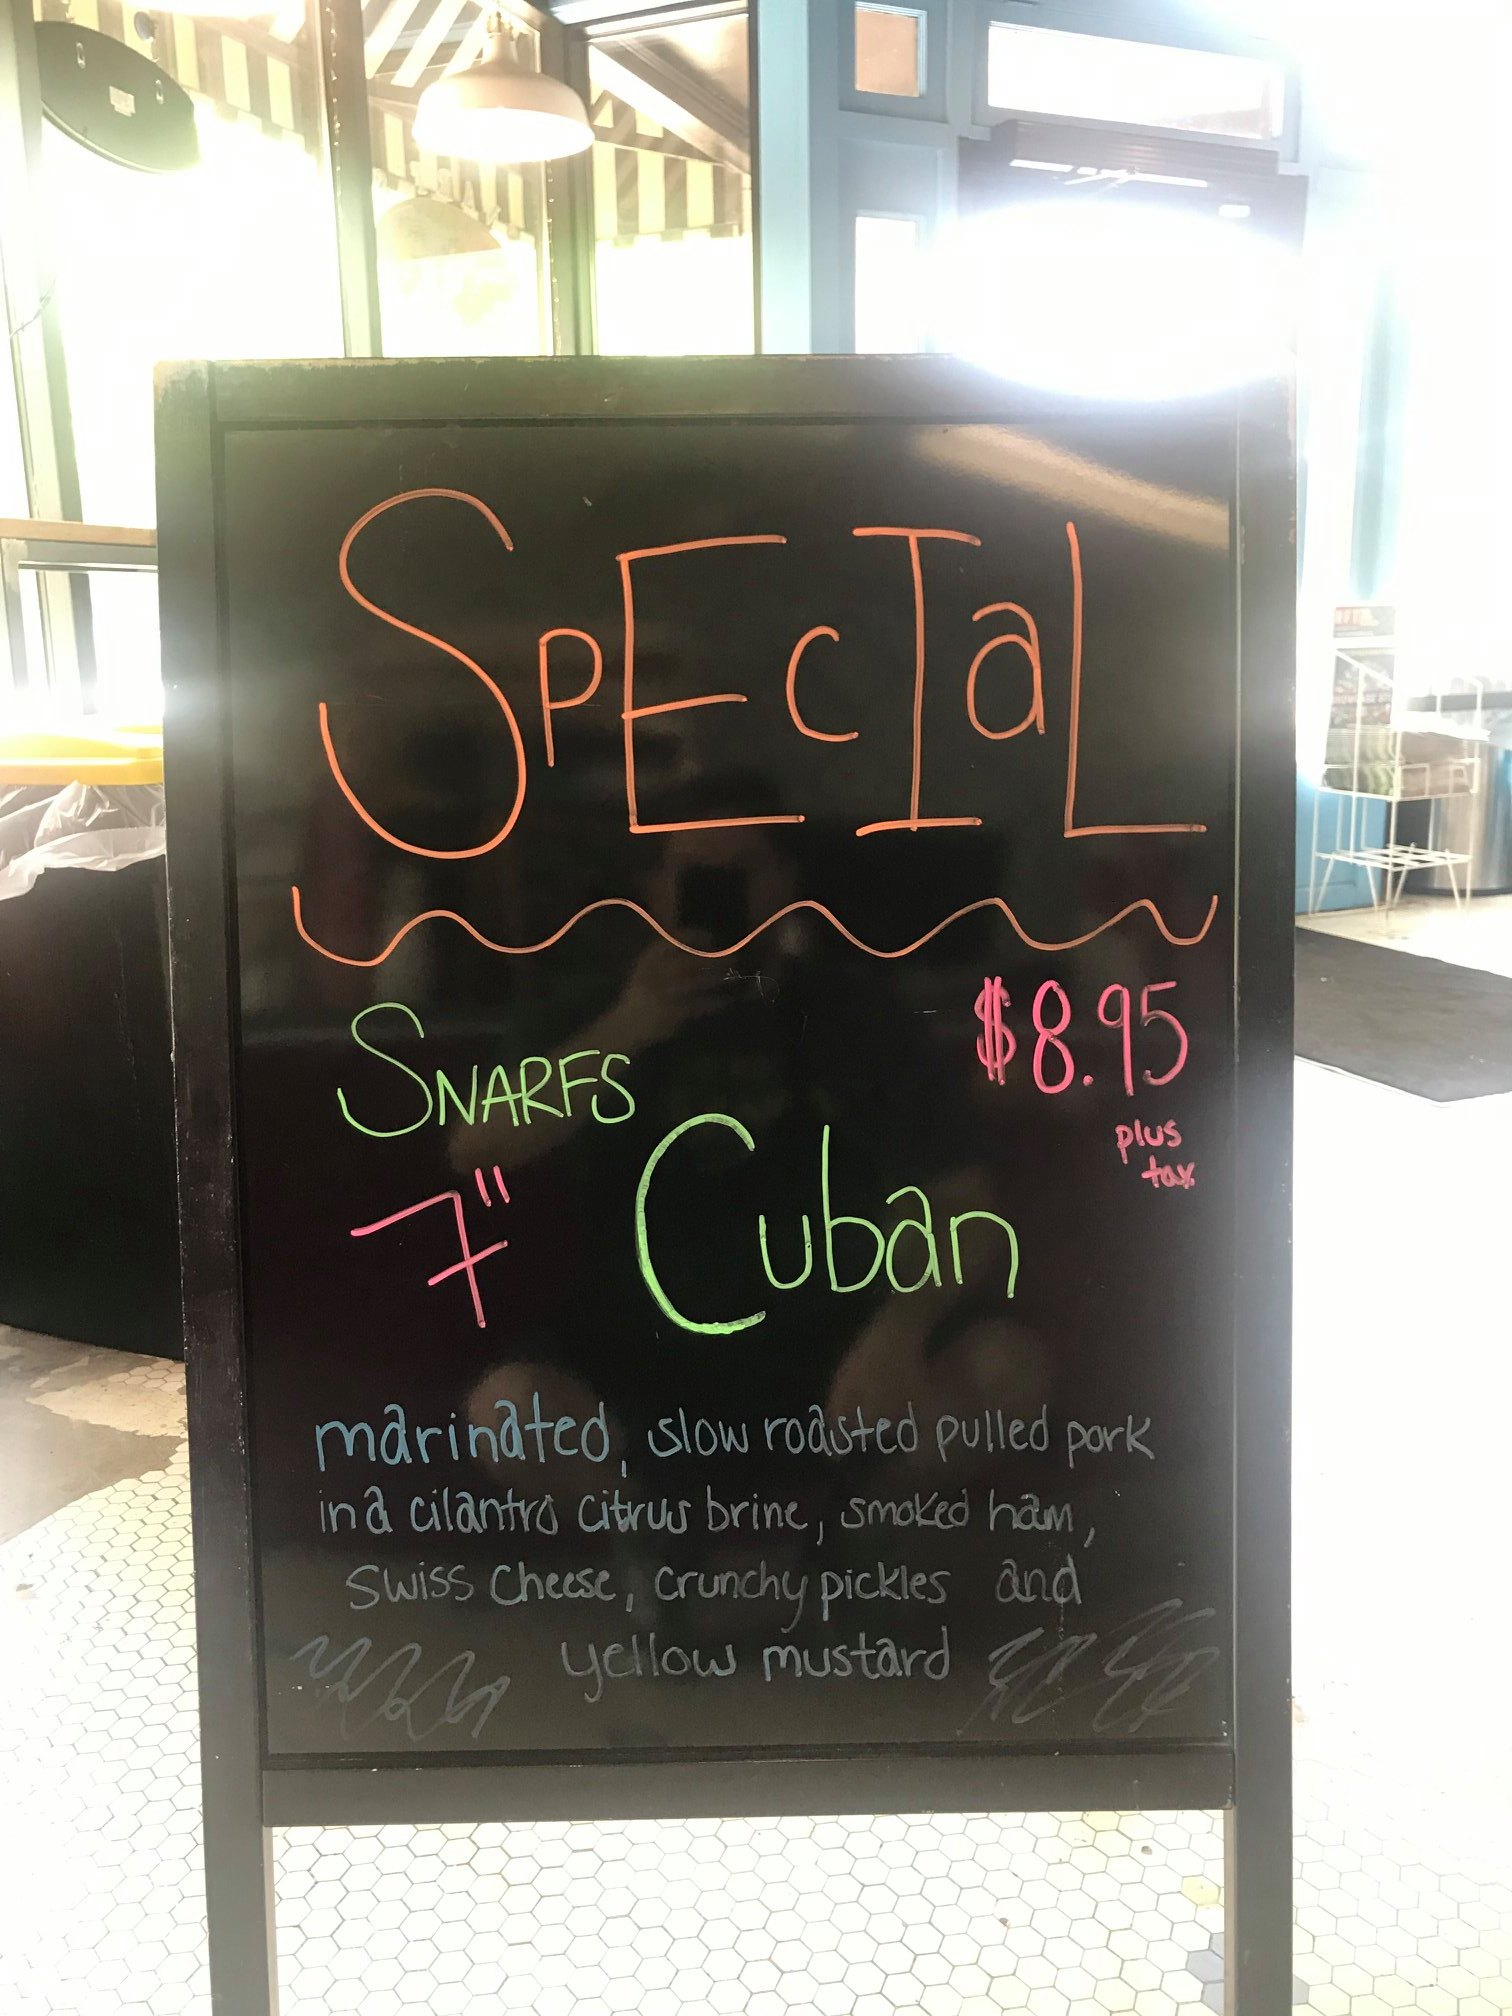 SpEcIaL
SNARFS
$8.95
plus
tax
7" Cuban
marinated, slow roasted pulled pork
in a cilantro citrus brine, smoked ham,
swiss cheese, crunchy pickles and
yellow mustard